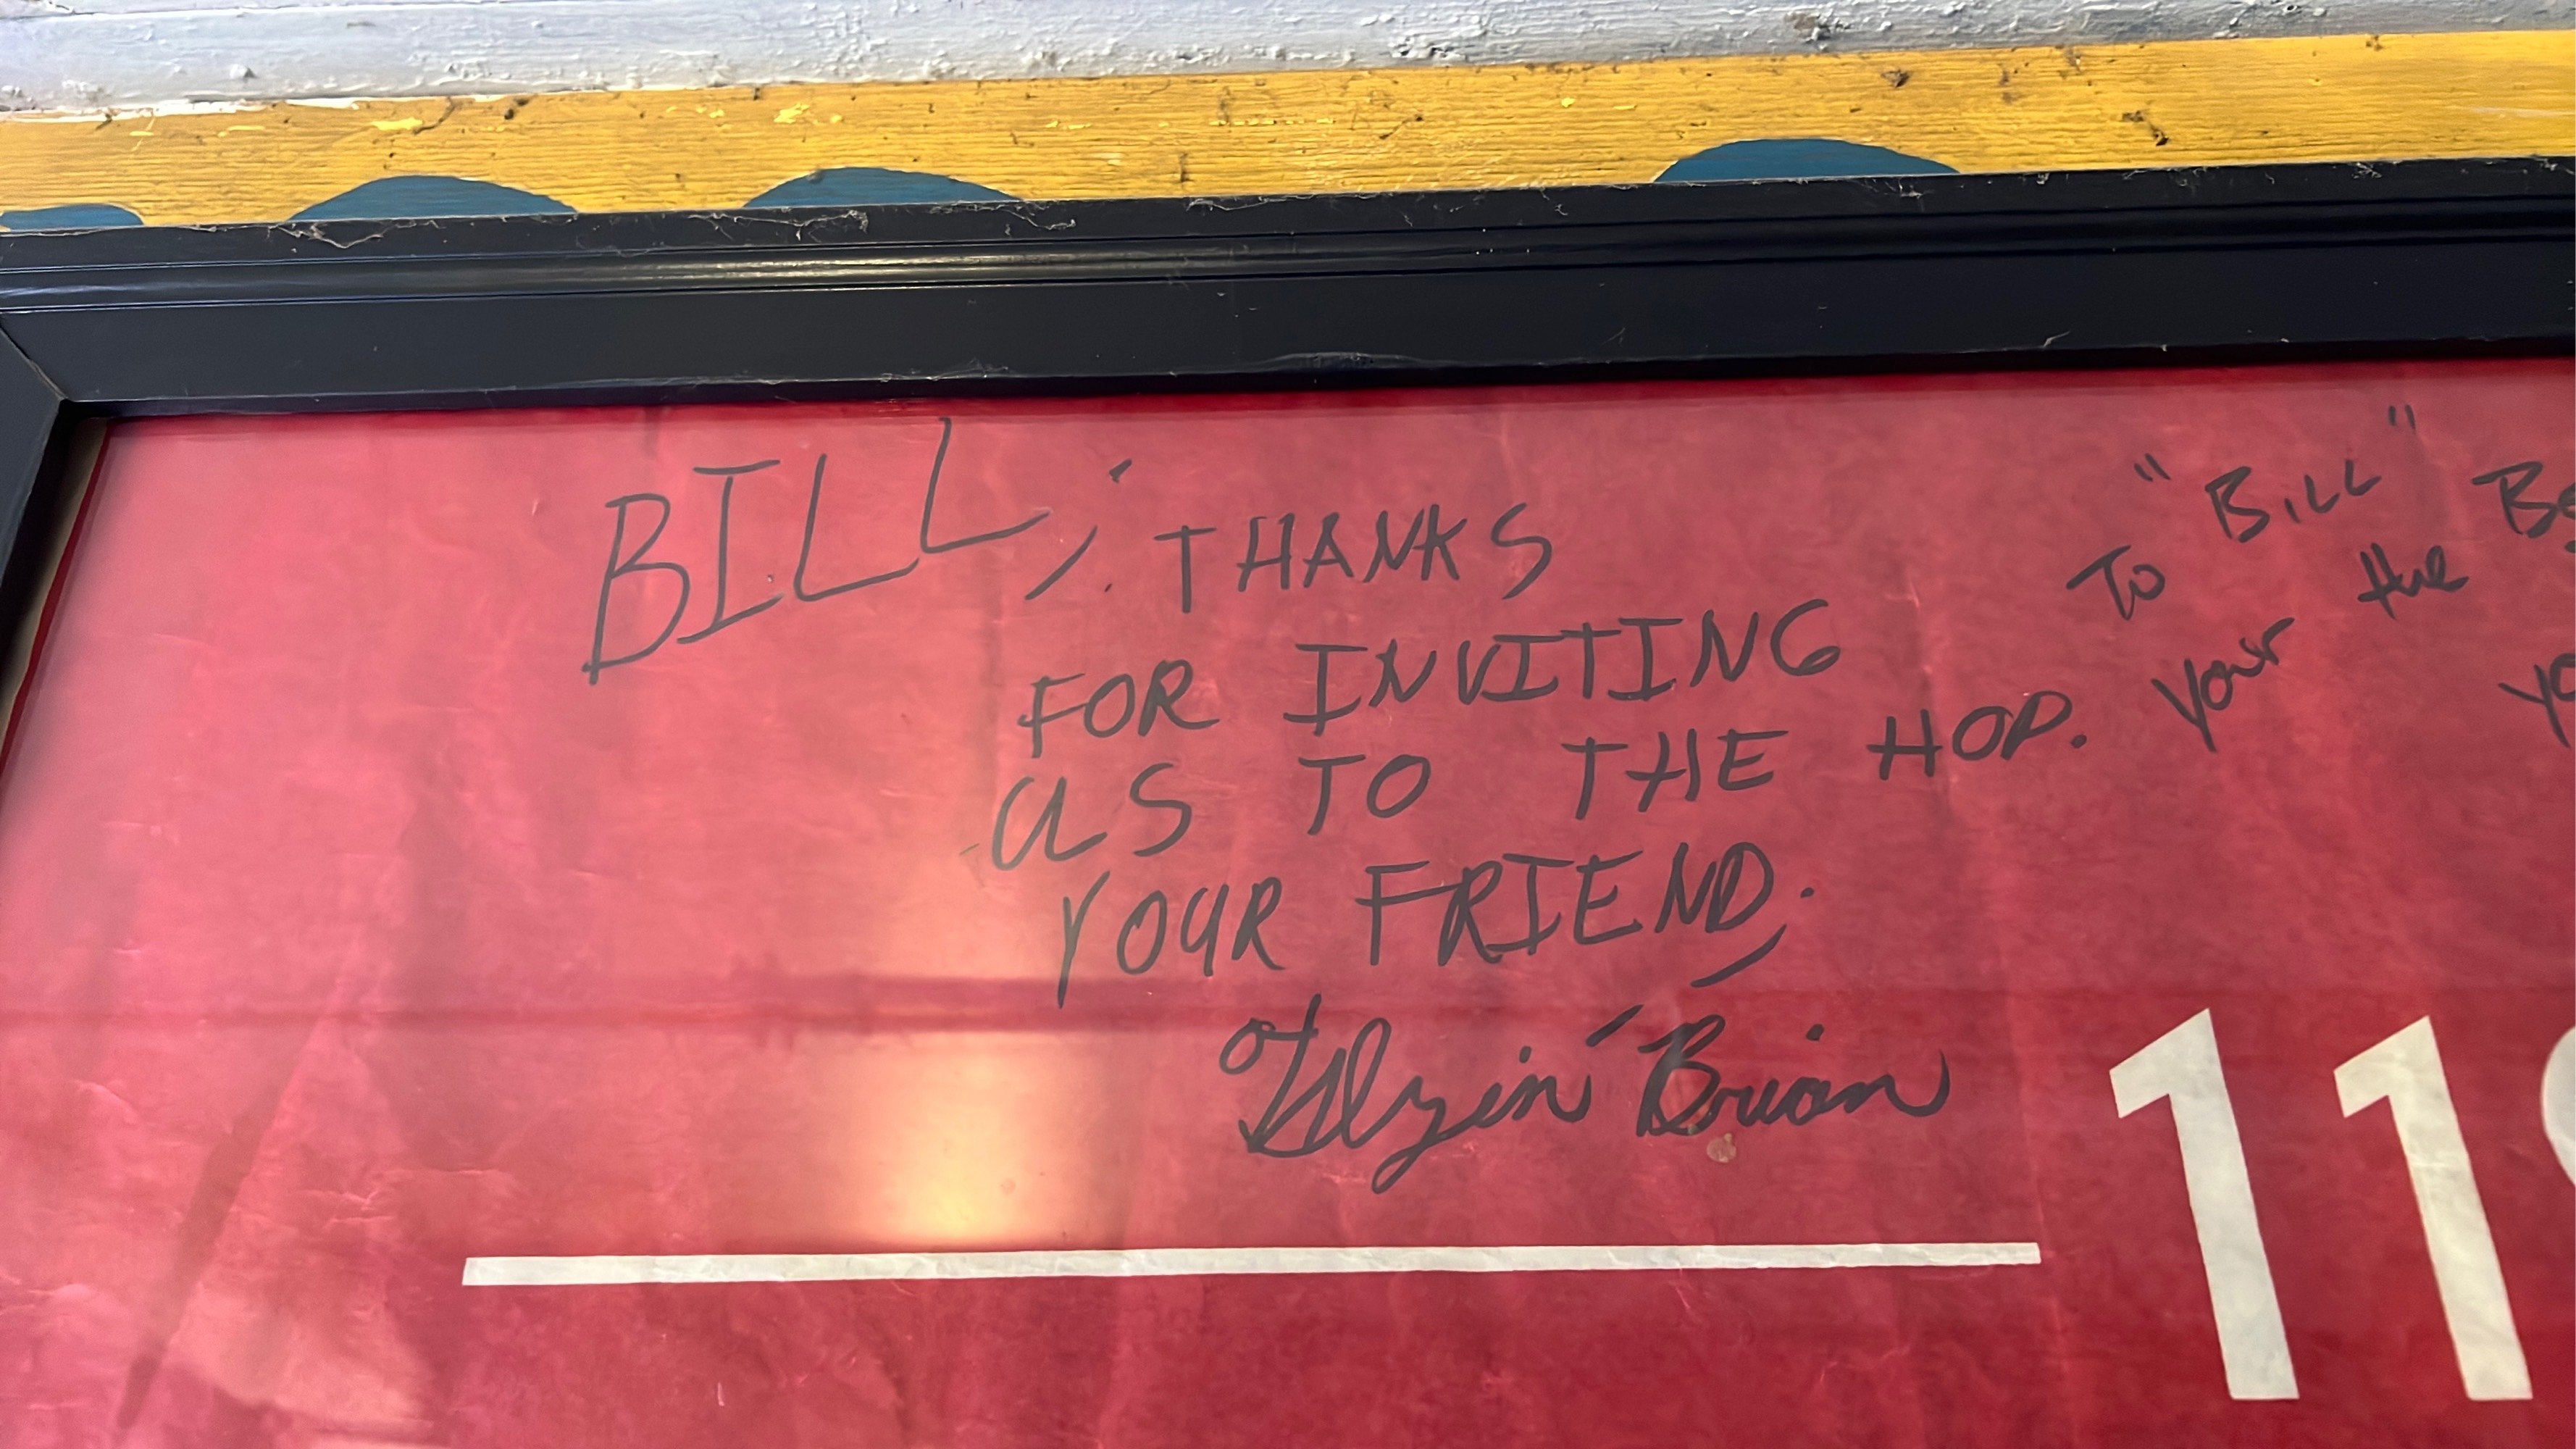 BILL, THANKS
FOR INVITING
US TO THE HOP.
YOUR FRIEND,
Brian
To "BiLL"
your the
11